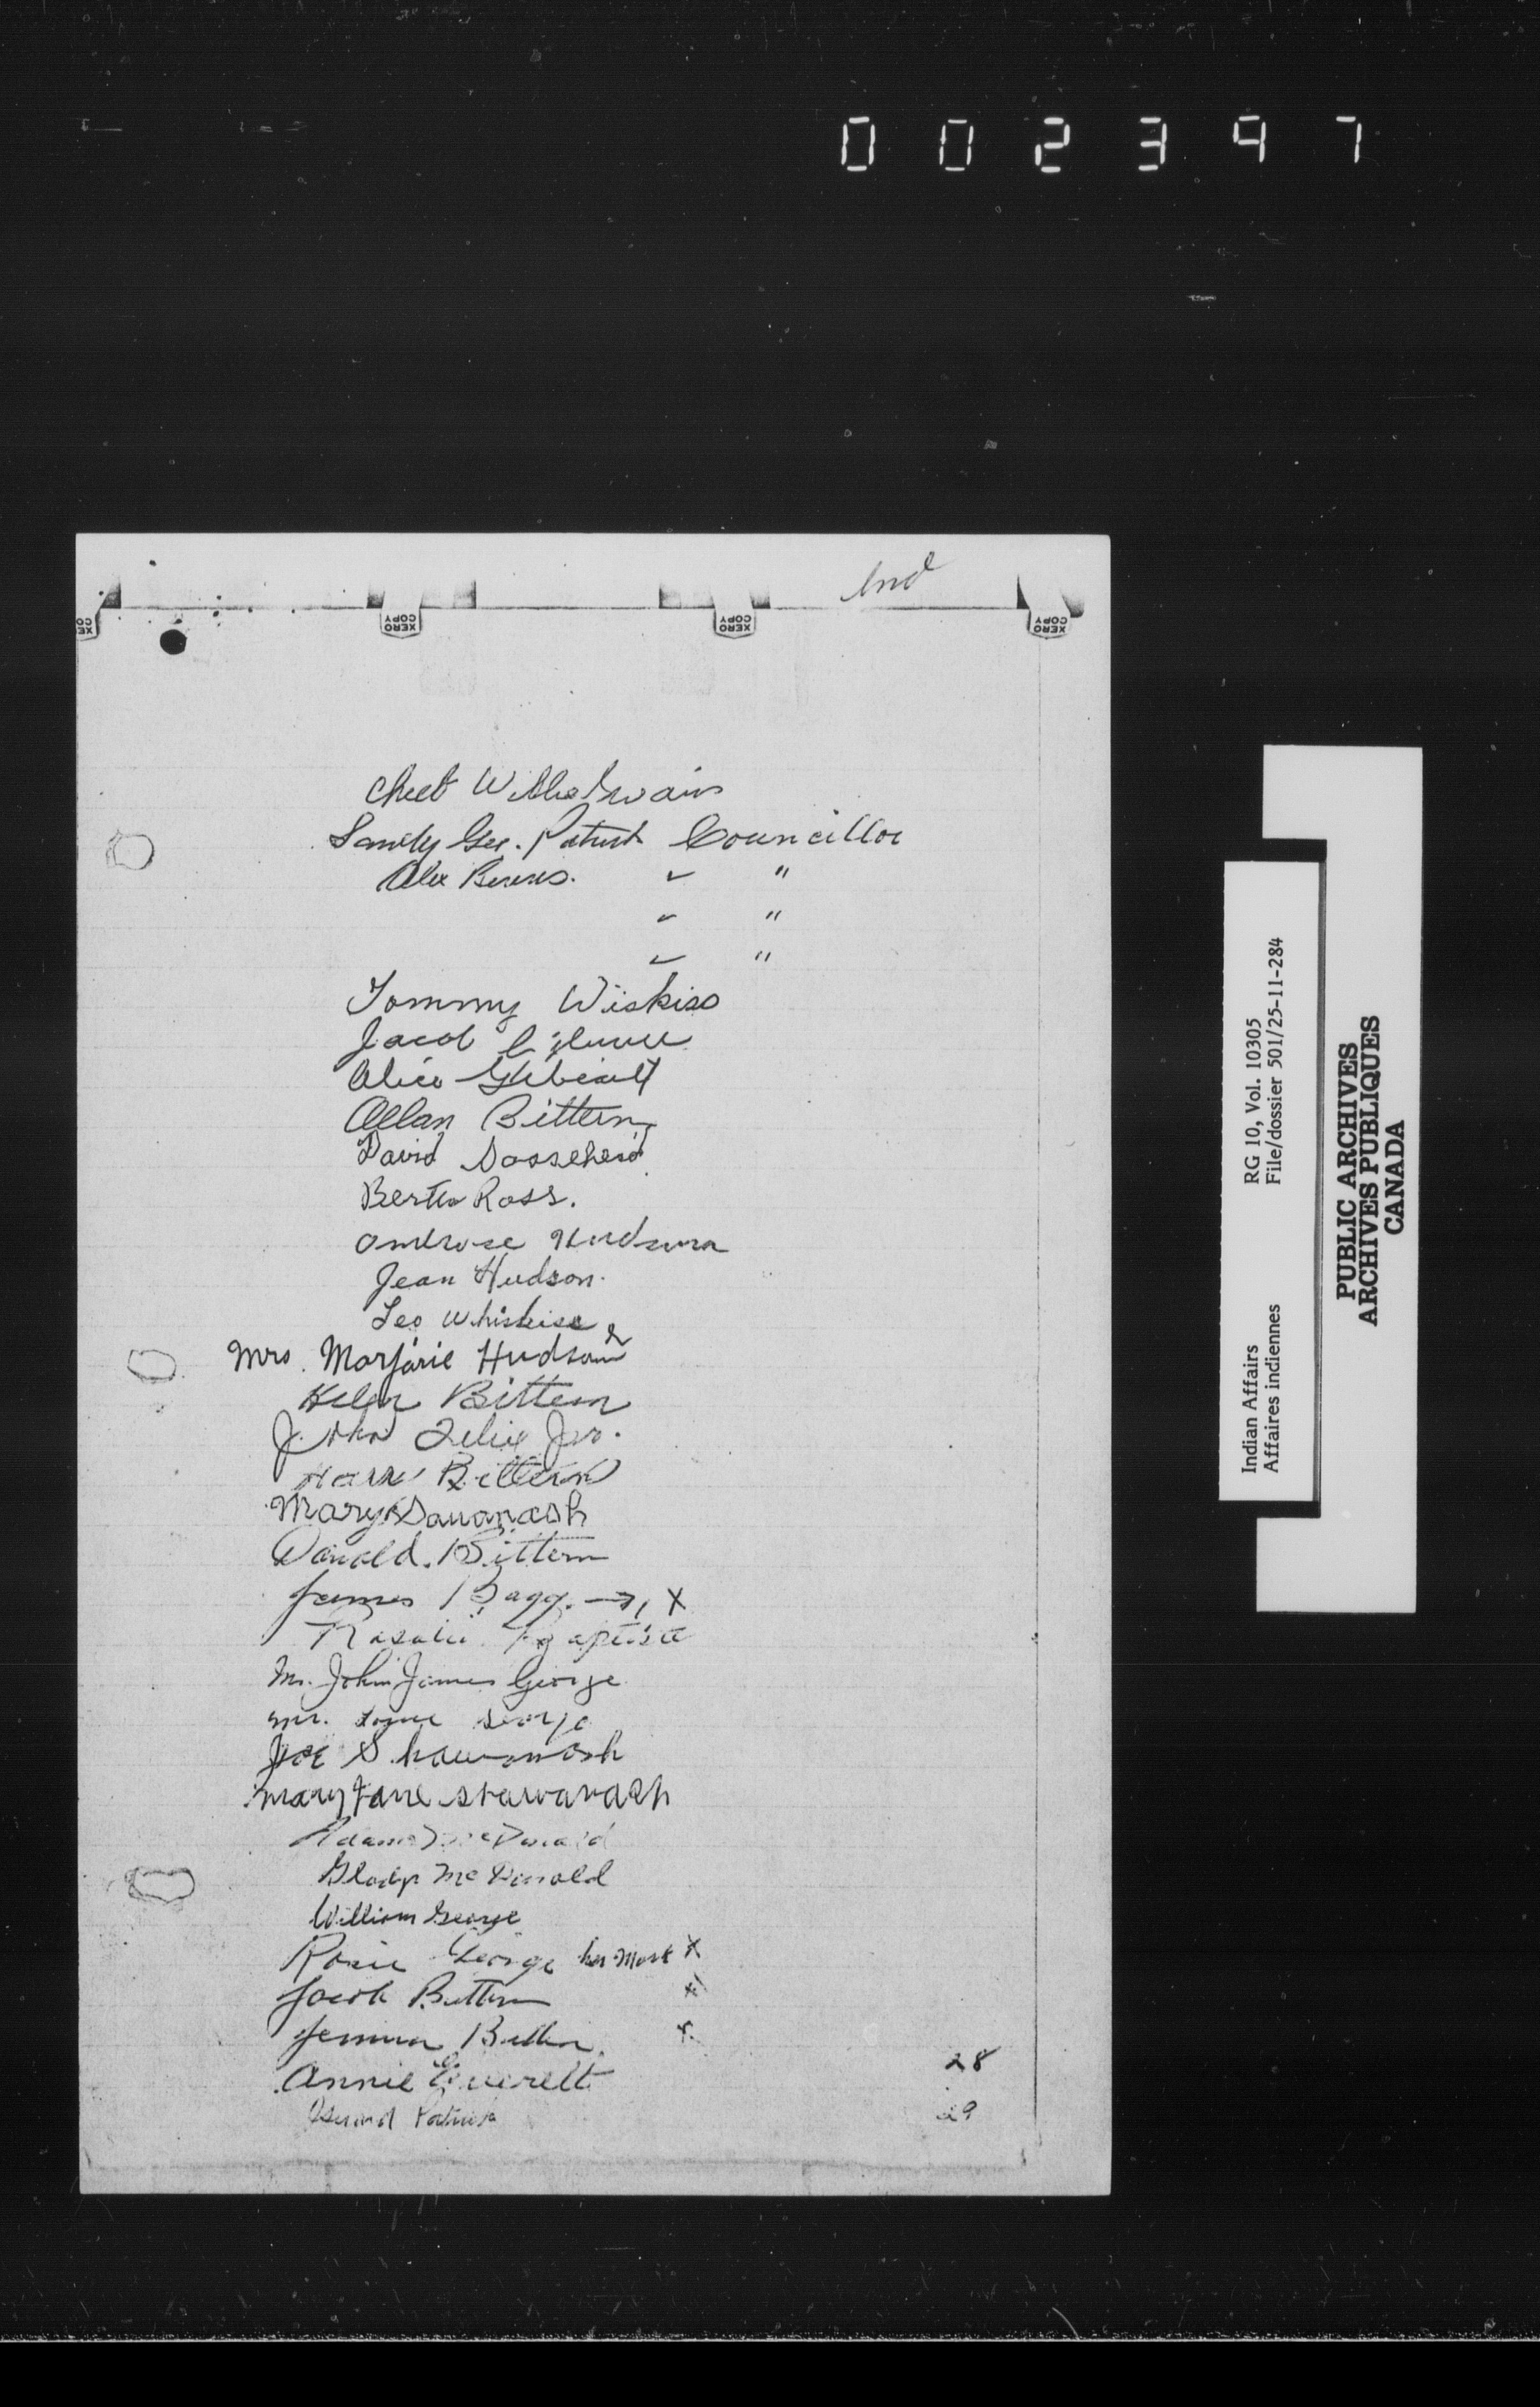 002397
Ind
XERO COPY
XERO COPY
XERO COPY
Chief W
Sandy Geo. Patrick Councillor
Alex Bruns. ✓ "
✓ "
✓ "
Tommy Wiskiso
Jacob
Alice
Allan Bittern
David
Bertha Ross.
Ambrose Hudson
Jean Hudson.
Leo Whiskise
Mrs. Marjorie Hudson
Helen Bittern
John Felix Jr.
Harry Bittern
Mary Savanash
Donald. Bittern
James Bagg. X
Rosalie Baptiste
Mr. John James George
Mr. George
Joe Shawanash
Mary Jane Shawanash
Adams McDonald
Gladys McDonald
William George
Rosie George her Mark X
Jacob Bittern x
Jemima Bittern x
Annie Everett 28
Patrick 29
Indian Affairs RG 10, Vol. 10305
Affaires indiennes File/dossier 501/25-11-284
PUBLIC ARCHIVES
ARCHIVES PUBLIQUES
CANADA